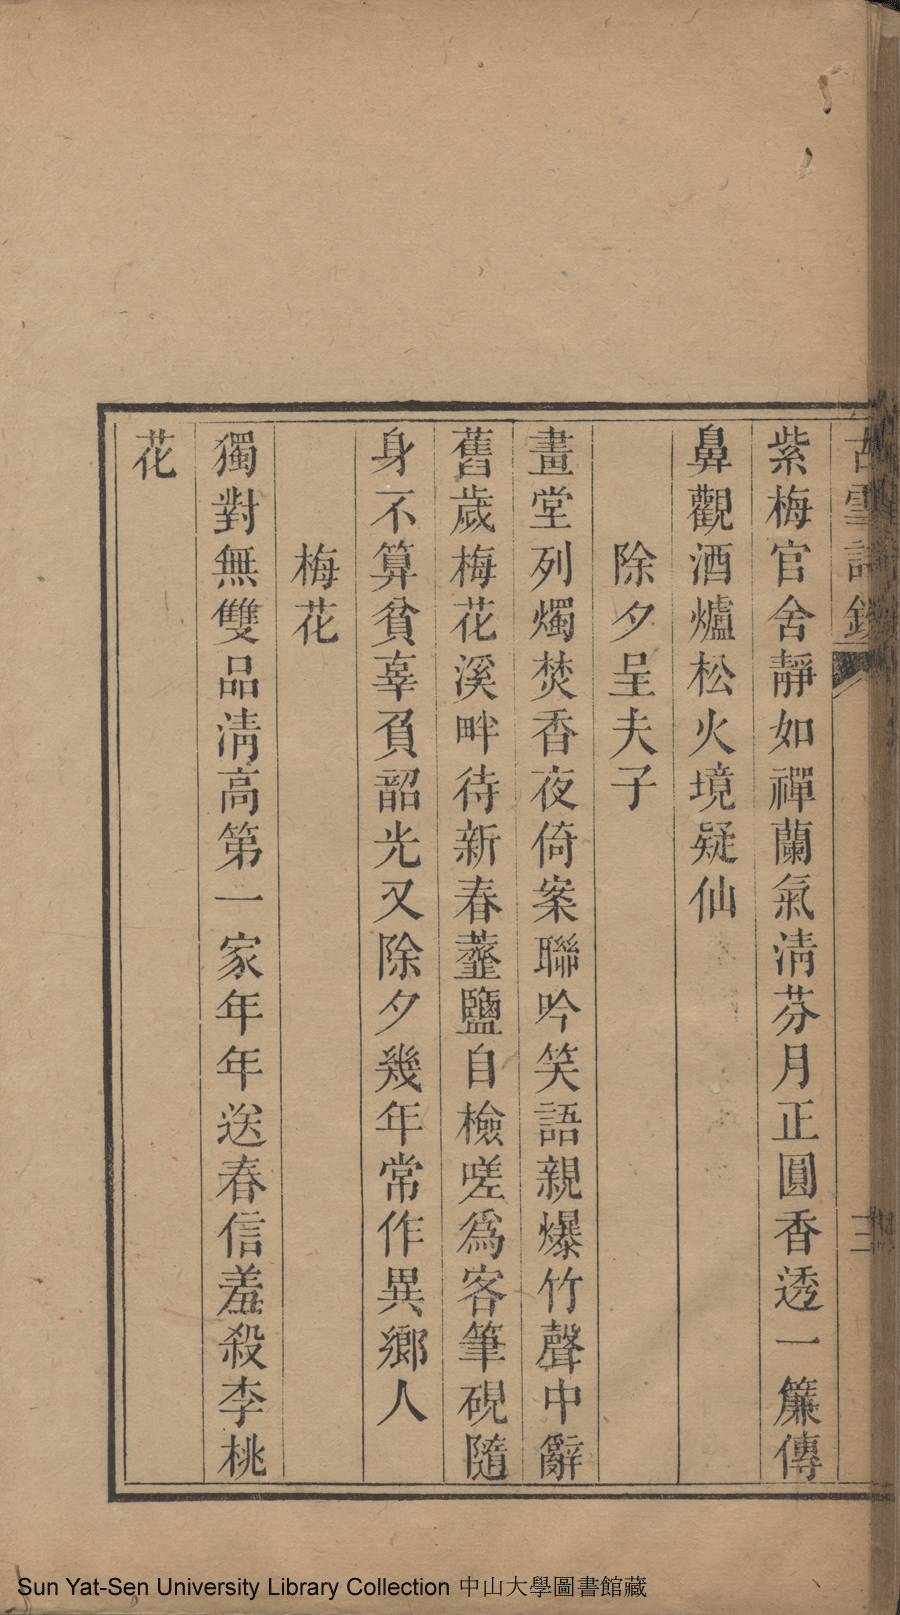 古雪詩鈔
三
紫梅官舍靜如禪蘭氣淸芬月正圓香透一簾傳
鼻觀酒爐松火境疑仙
除夕呈夫子
畫堂列燭焚香夜倚案聯吟笑語親爆竹聲中辭
舊歲梅花溪畔待新春虀鹽自檢嗟爲客筆硯隨
身不算貧辜負韶光又除夕幾年常作異鄉人
梅花
獨對無雙品淸高第一家年年送春信羞殺李桃
花
Sun Yat-Sen University Library Collection 中山大學圖書館藏